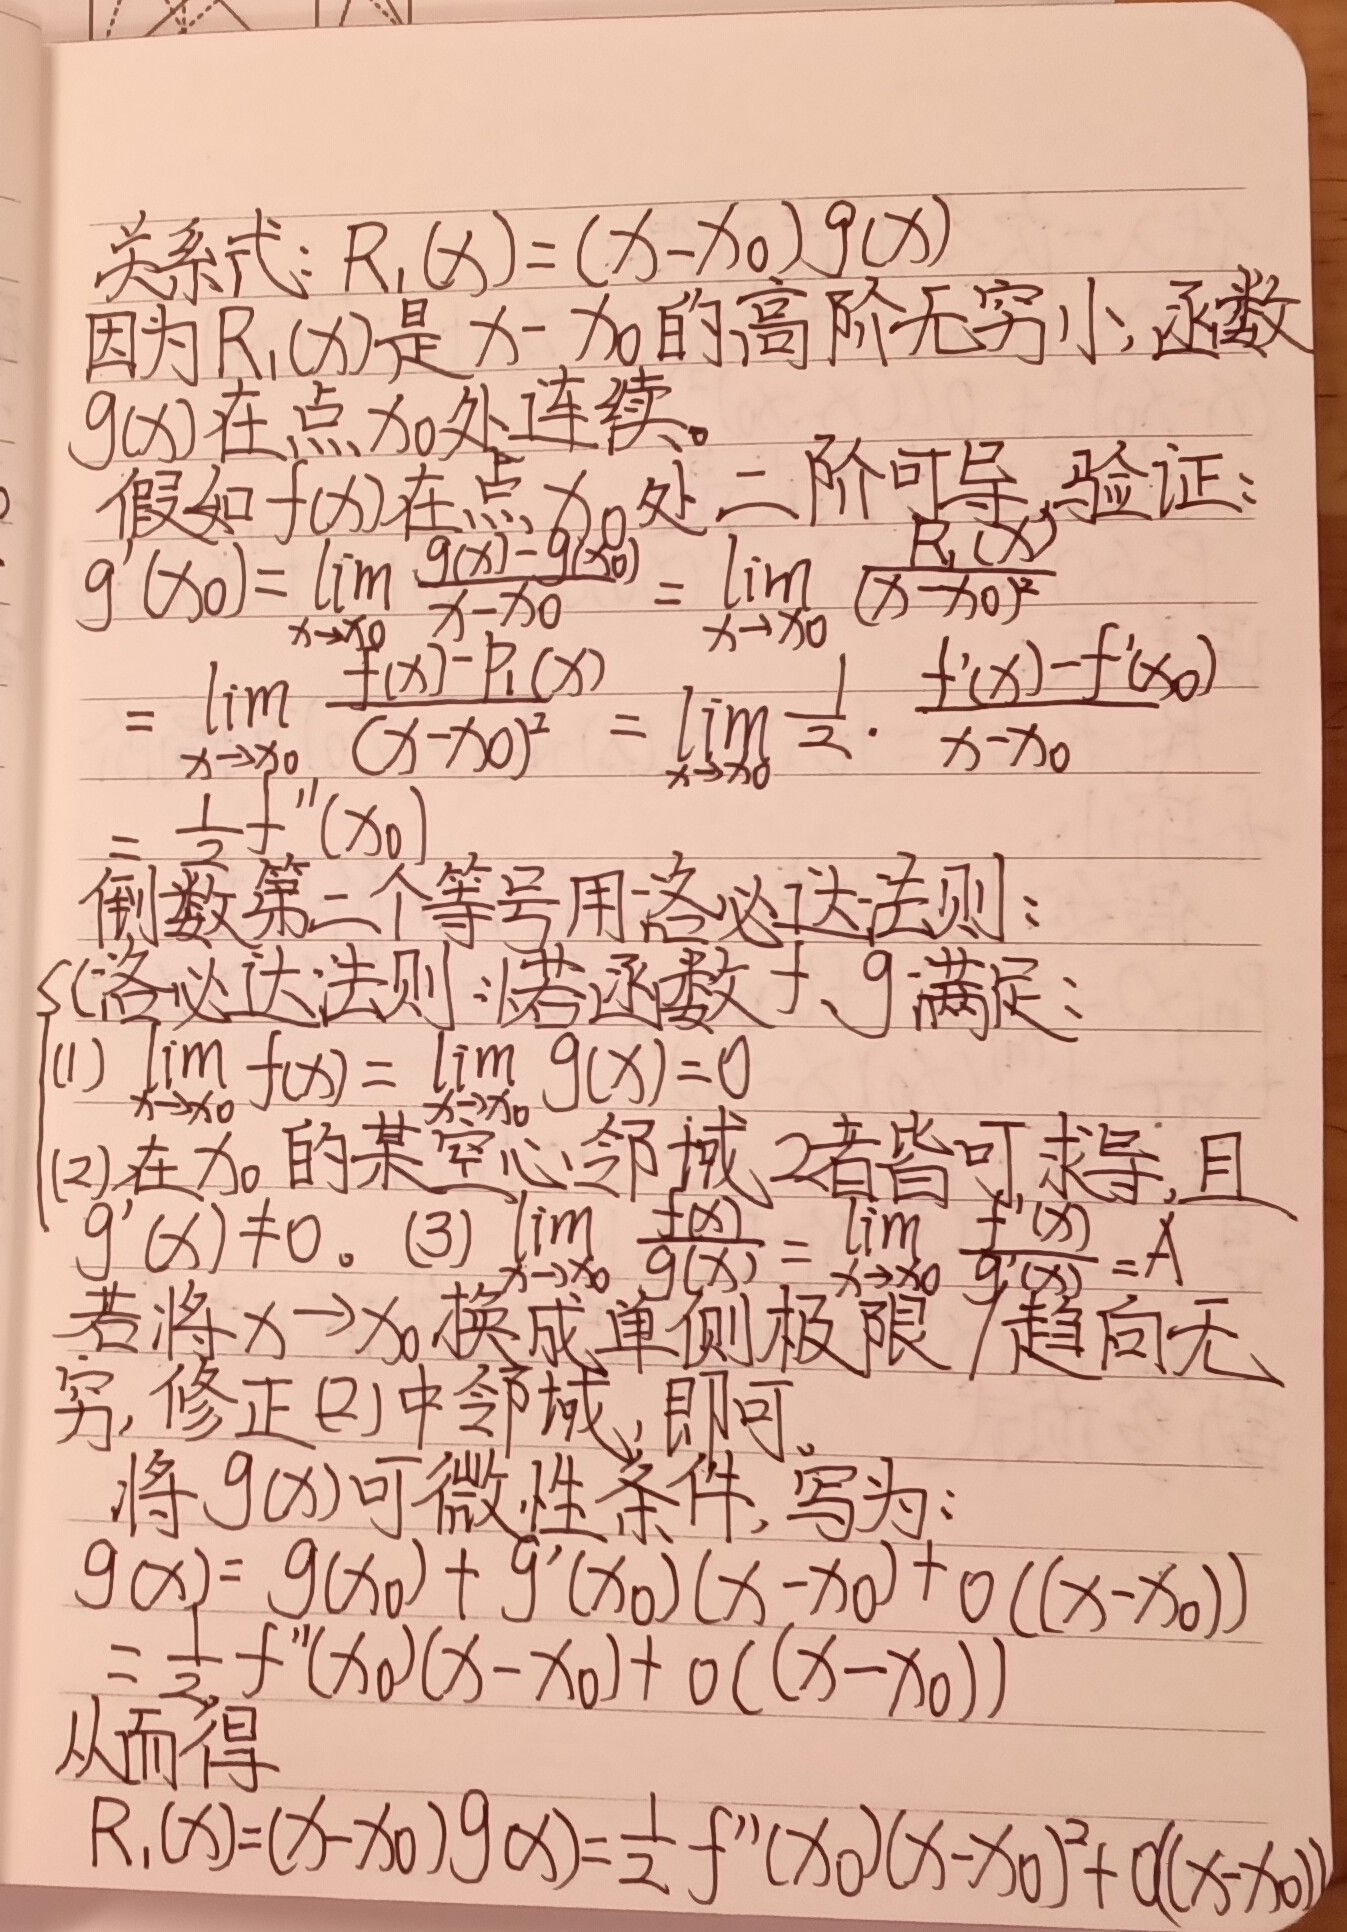 关系式: R₁(x)=(x-x₀)g(x)
因为R₁(x)是x-x₀的高阶无穷小,函数
g(x)在点x₀处连续。
假如f(x)在点x₀处二阶可导,验证:
g'(x₀)=lim_{x→x₀} (g(x)-g(x₀))/(x-x₀) = lim_{x→x₀} R₁(x)/(x-x₀)²
= lim_{x→x₀} (f(x)-P₁(x))/(x-x₀)² = lim_{x→x₀} 1/2 · (f'(x)-f'(x₀))/(x-x₀)
= 1/2 f''(x₀)
倒数第二个等号用洛必达法则:
{(洛必达法则:若函数f、g满足:
(1) lim_{x→x₀} f(x)= lim_{x→x₀} g(x)=0
(2)在x₀的某空心邻域,2者皆可求导,且
g'(x)≠0。(3) lim_{x→x₀} f(x)/g(x) = lim_{x→x₀} f'(x)/g'(x) =A
若将x→x₀换成单侧极限/趋向无
穷,修正(2)中邻域,即可。
将g(x)可微性条件,写为:
g(x)= g(x₀)+g'(x₀)(x-x₀)+o((x-x₀))
= 1/2 f''(x₀)(x-x₀)+o((x-x₀))
从而得
R₁(x)=(x-x₀)g(x)=1/2 f''(x₀)(x-x₀)²+o((x-x₀))